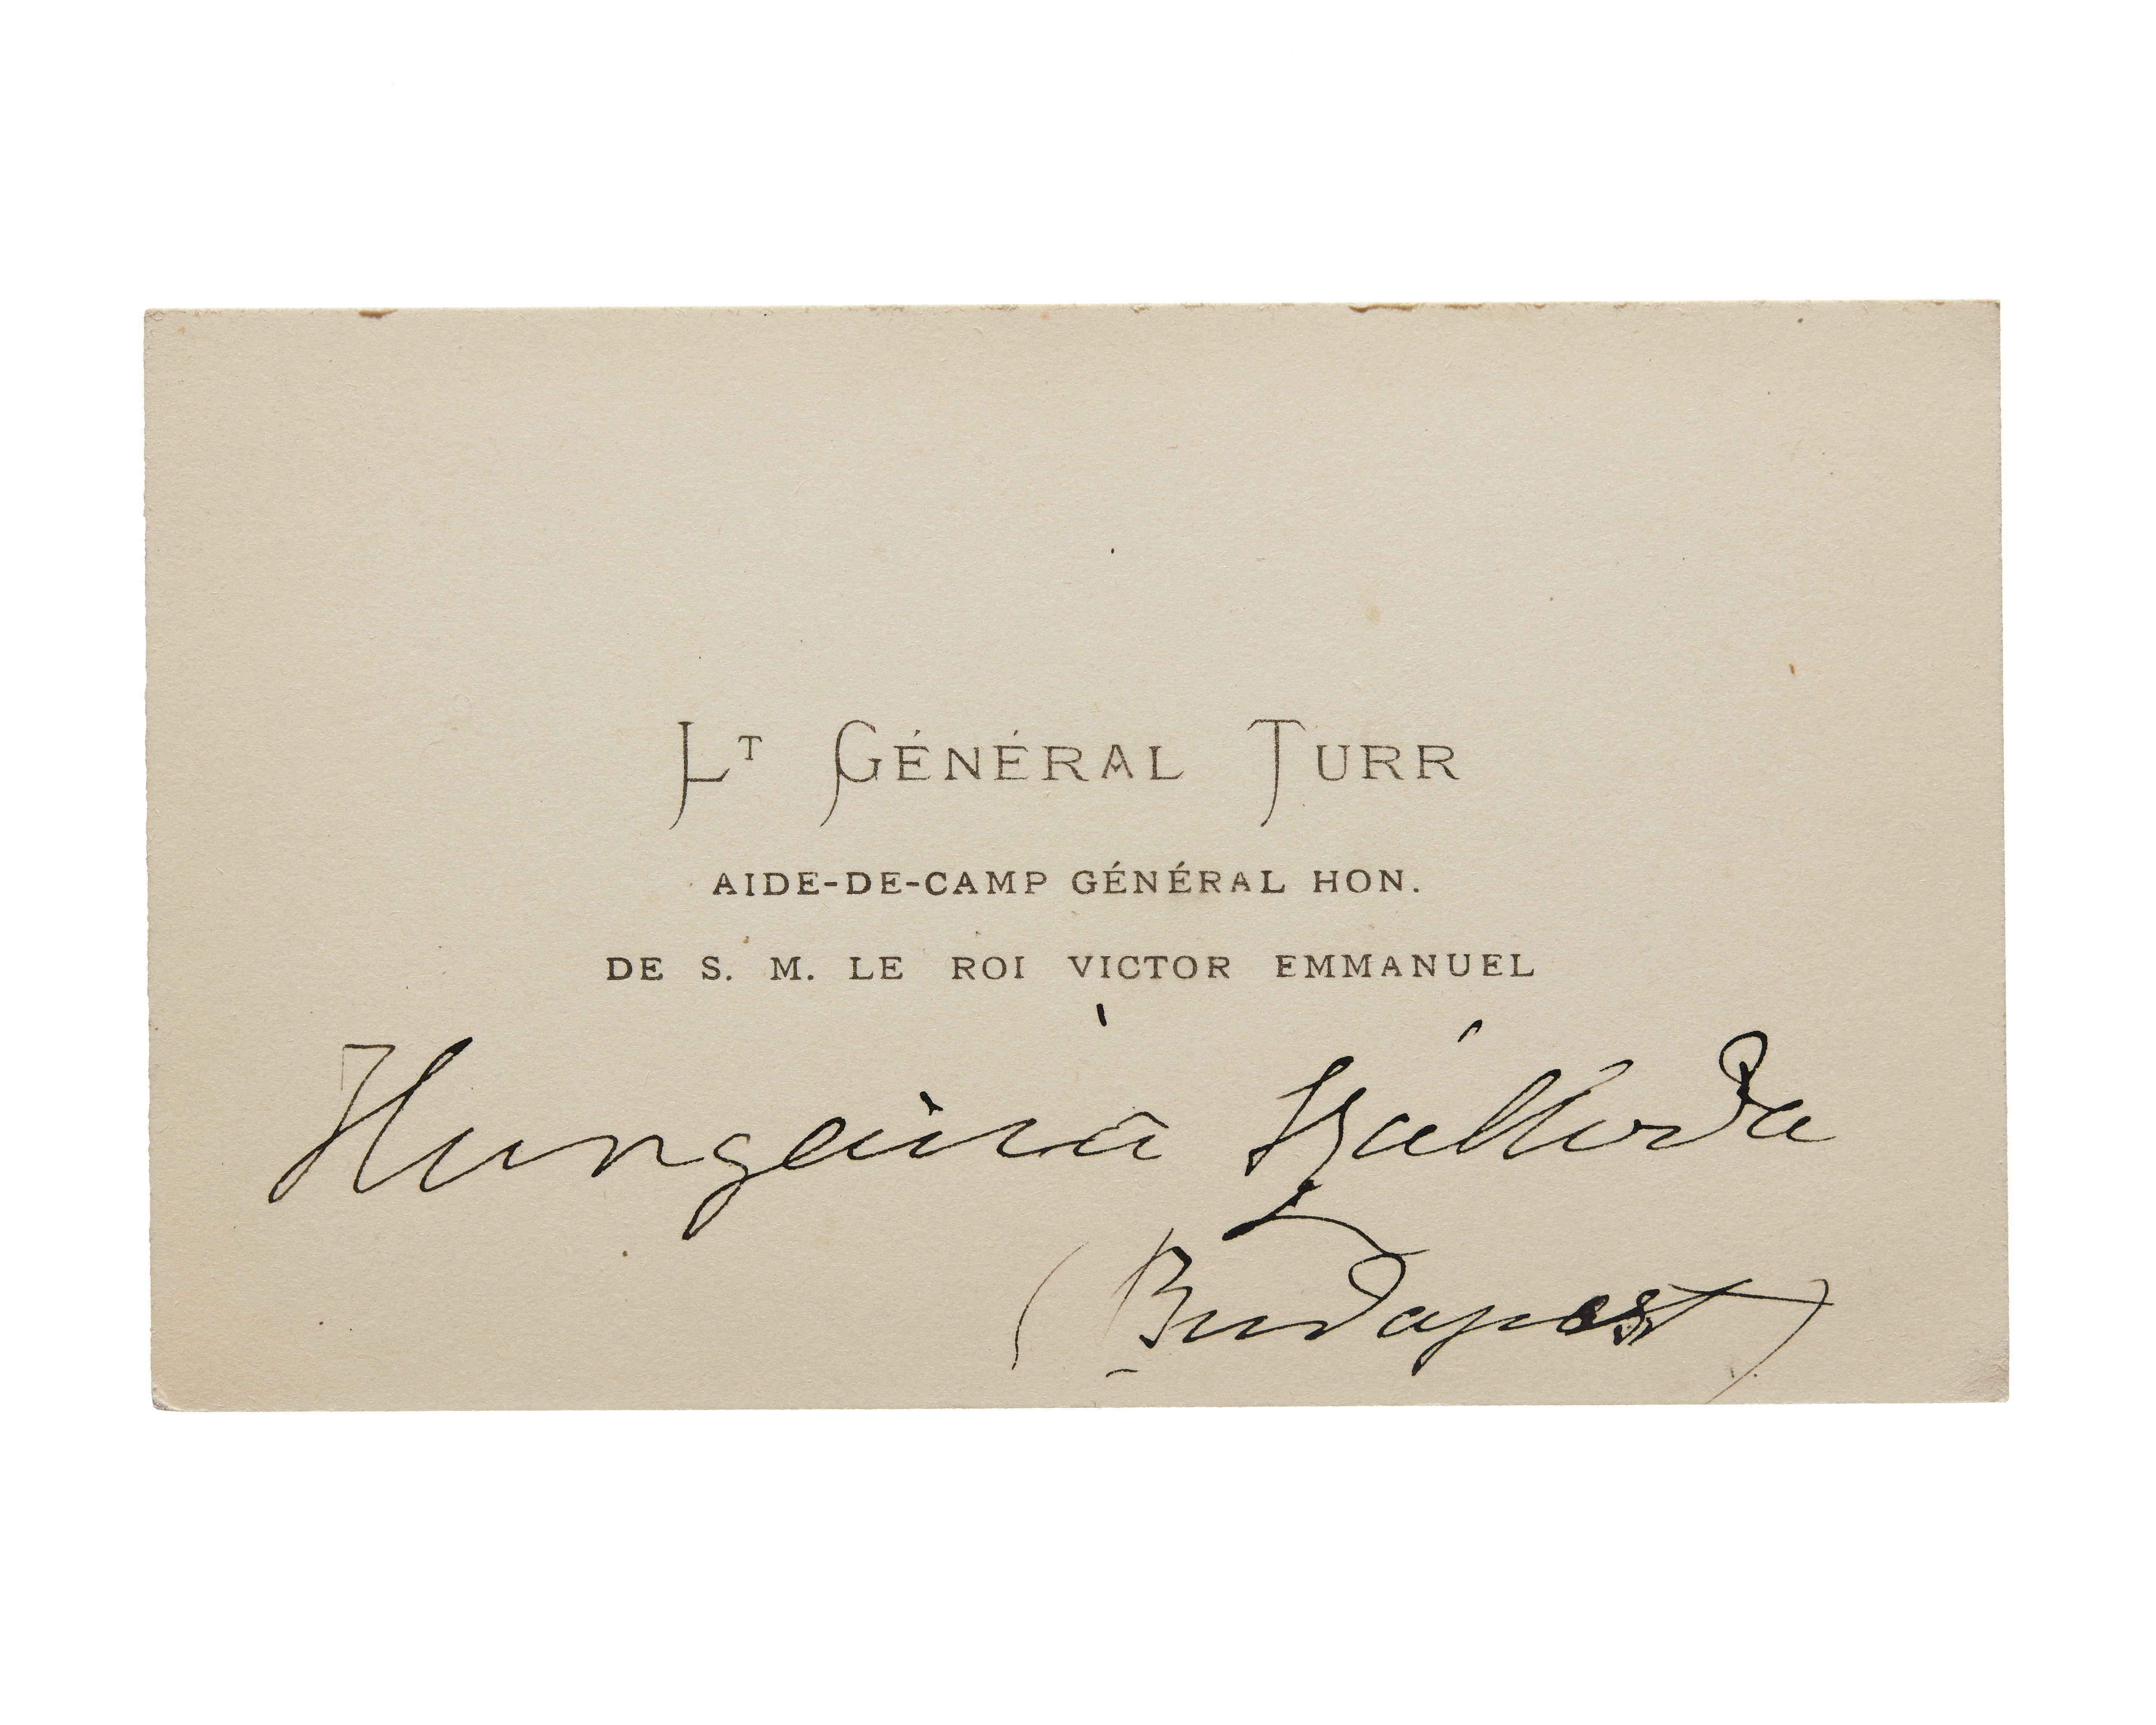 LT GÉNÉRAL TURR
AIDE-DE-CAMP GÉNÉRAL HON.
DE S. M. LE ROI VICTOR EMMANUEL
Hungária Szálloda
(Budapest)